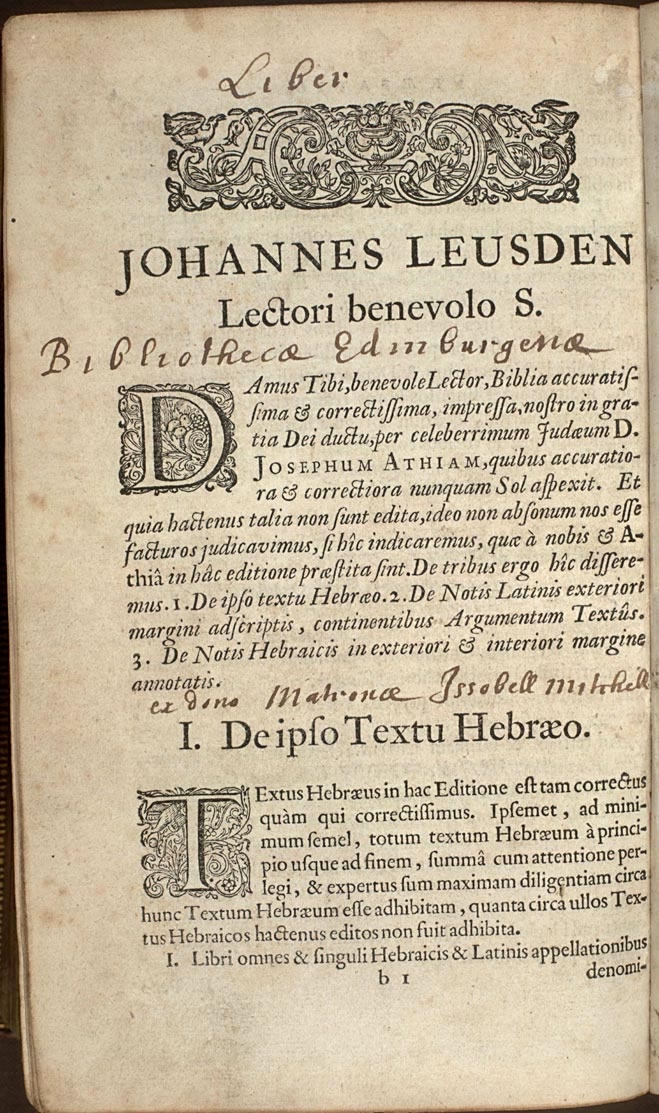 Liber
JOHANNES LEUSDEN
Lectori benevolo S.
Bibliothecæ Edinburgenæ
DAmus Tibi, benevole Lector, Biblia accuratiſ-
ſima & correctiſſima, impreſſa, noſtro in gra-
tia Dei ductu, per celeberrimum Judæum D.
JOSEPHUM ATHIAM, quibus accuratio-
ra & correctiora nunquam Sol aſpexit. Et
quia hactenus talia non ſunt edita, ideo non abſonum nos eſſe
facturos judicavimus, ſi hîc indicaremus, quæ à nobis & A-
thiâ in hâc editione præſtita ſint. De tribus ergo hîc diſſere-
mus. 1. De ipſo textu Hebræo. 2. De Notis Latinis exteriori
margini adſcriptis, continentibus Argumentum Textûs.
3. De Notis Hebraicis in exteriori & interiori margine
annotatis.
ex dono Matronæ Issobell Mitchell
I. De ipſo Textu Hebræo.
TExtus Hebræus in hac Editione eſt tam correctus
quàm qui correctiſſimus. Ipſemet, ad mini-
mum ſemel, totum textum Hebræum à princi-
pio uſque ad finem, ſummâ cum attentione per-
legi, & expertus ſum maximam diligentiam circa
hunc Textum Hebræum eſſe adhibitam, quanta circa ullos Tex-
tus Hebraicos hactenus editos non fuit adhibita.
I. Libri omnes & ſinguli Hebraicis & Latinis appellationibus
b 1 denomi-